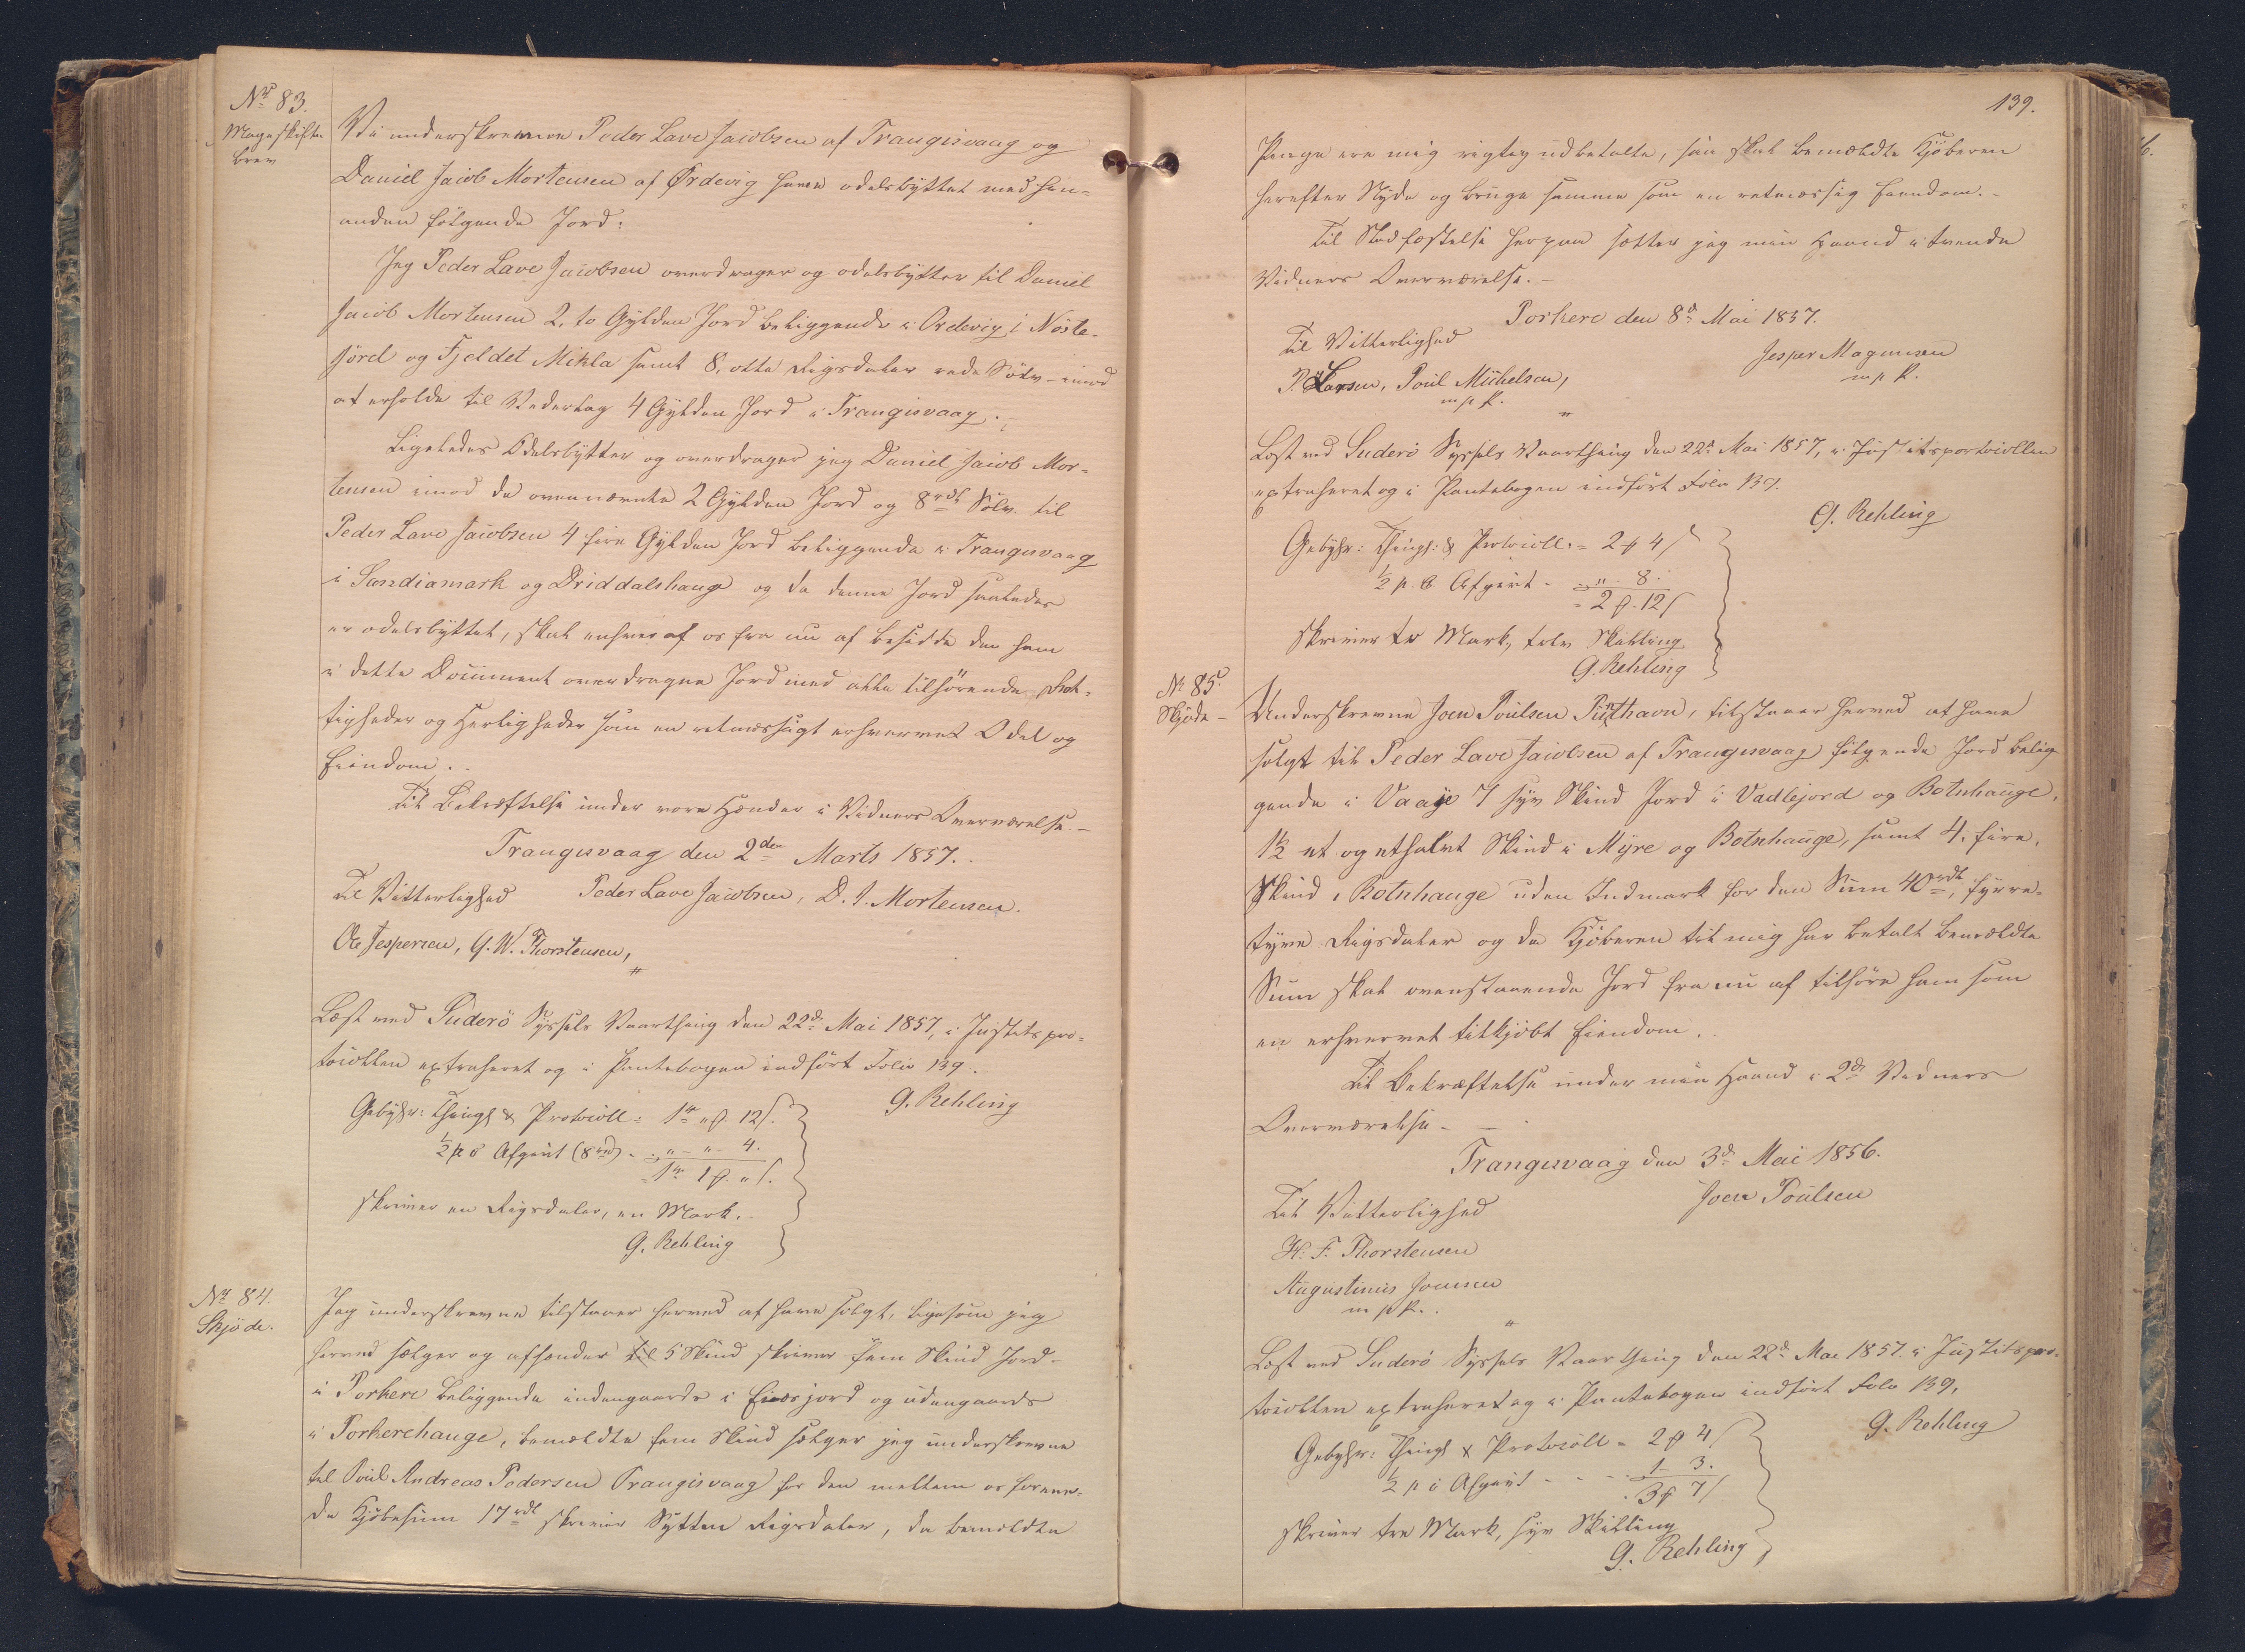 No 83.
Mageskifte
brev
Vi underskrevne Peder Lave Jacobsen af Trangisvaag og
Daniel Jacob Mortensen af Ørdevig have odelsbyttet med hin-
anden følgende Jord:
Jeg Peder Lave Jacobsen overdrager og odelsbytter til Daniel
Jacob Mortensen 2, to Gylden Jord beliggende i Ordevig i Nöste-
jörd og Fjeldet Mikla samt 8, otte Rigsdaler rede Sölv - imod
at erholde til Vederlag 4 Gylden Jord i Trangisvaag.
Ligeledes Odelsbytter og overdrager jeg Daniel Jacob Mor-
tensen imod de ovennævnte 2 Gylden Jord og 8 rdl Sölv til
Peder Lave Jacobsen 4 fire Gylden Jord beliggende i Trangisvaag
i Sandiamark og Driddalshauge og da denne Jord saaledes
er odelsbyttet, skal enhver af os fra nu af besidde den ham
i dette Document overdragne Jord med alle tilhörende Her-
ligheder og Herligheder som en retmæssigt erhvervet Odel og
Eiendom.
Til Bekræftelse under vore Hænder i Vidners Overværelse. -
Trangisvaag den 2den Marts 1857.
Til Vitterlighed Peder Lave Jacobsen, D. J. Mortensen.
Ole Jespersen, G. W. Thorstensen,
Læst ved Suderö Syssels Vaarthing den 22d Mai 1857, i Justitspro-
tocollen extraheret og i Pantebogen indfört Folio 139.
G. Rehling
Gebyhr: Thingl & Protocoll = 1 rd " f. 12 s.
½ p c Afgivt (8 rd) - " - " - 4.
1 rd 1 f. " s.
skriver en Rigsdaler, en Mark.
G. Rehling
No 84.
Skjöde.
Jeg underskrevne tilstaaer herved at have solgt, ligesom jeg
herved sælger og afhænder til 5 Skind skriver fem Skind Jord
i Porkere beliggende indengaards i Eiersjord og udengaards
i Porkerehauge, bemældte fem Skind sælger jeg underskrevne
til Poul Andreas Pedersen Trangisvaag for den mellem os foreene-
de Kjöbesum 17 rdl skriver Sytten Rigsdaler, da bemeldte
139.
Penge ere mig rigtig udbetalte, saa skal bemældte Kjöberen
herefter Nyde og bruge samme som en retmæssig Eiendom. -
Til Stadfæstelse herpaa sætter jeg min Haand i tvende
Vidners Overværelse. -
Porkere den 8d Mai 1857.
Til Vitterlighed
Jesper Magnusen
m p P.
P. Larsen, Poul Michelsen,
m p P.
Læst ved Suderö Syssels Vaarthing den 22d Mai 1857, i Justitsportocollen
extraheret og i Pantebogen indfört Folio 139.
G. Rehling
Gebyhr: Thingl: & Protocoll: = 2 f 4 s
½ p. C. Afgivt - " 8.
2 f. 12 s
skriver to Mark, tolv Skilling
G. Rehling
No 85.
Skjöde -
Underskrevne Joen Poulsen Punthavn, tilstaaer herved at have
solgt til Peder Lave Jacobsen af Trangisvaag følgende Jord belig
gende i Vaaje 7 syv Skind Jord i Vadlejord og Botnhauge,
1½ et og ethalvt Skind i Myre og Botnhauge, samt 4, fire,
Skind i Botnhauge uden Indmark for den Sum 40 rdl, fyrre-
tyve Rigsdaler og da Kjöberen til mig har betalt bemældte
Sum skal ovenstaaende Jord fra nu af tilhöre ham som
en erhvervet tilkjöbt Eiendom.
Til Bekræftelse under min Haand i 2de Vidners
Overværelse -
Trangisvaag den 3d Mai 1856.
Joen Poulsen
Til Vitterlighed
H. F. Thorstensen
Augustinus Joensen
m p P.
Læst ved Suderö Syssels Vaarthing den 22d Mai 1857. i Justitspro-
tocollen extraheret og i Pantebogen indfört Folio 139,
G. Rehling
Gebyhr: Thingl & Protocoll = 2 f 4 s
½ p c Afgivt - - - 1 - 3.
3 f 7 s
skriver tre Mark, syv Skilling
G. Rehling